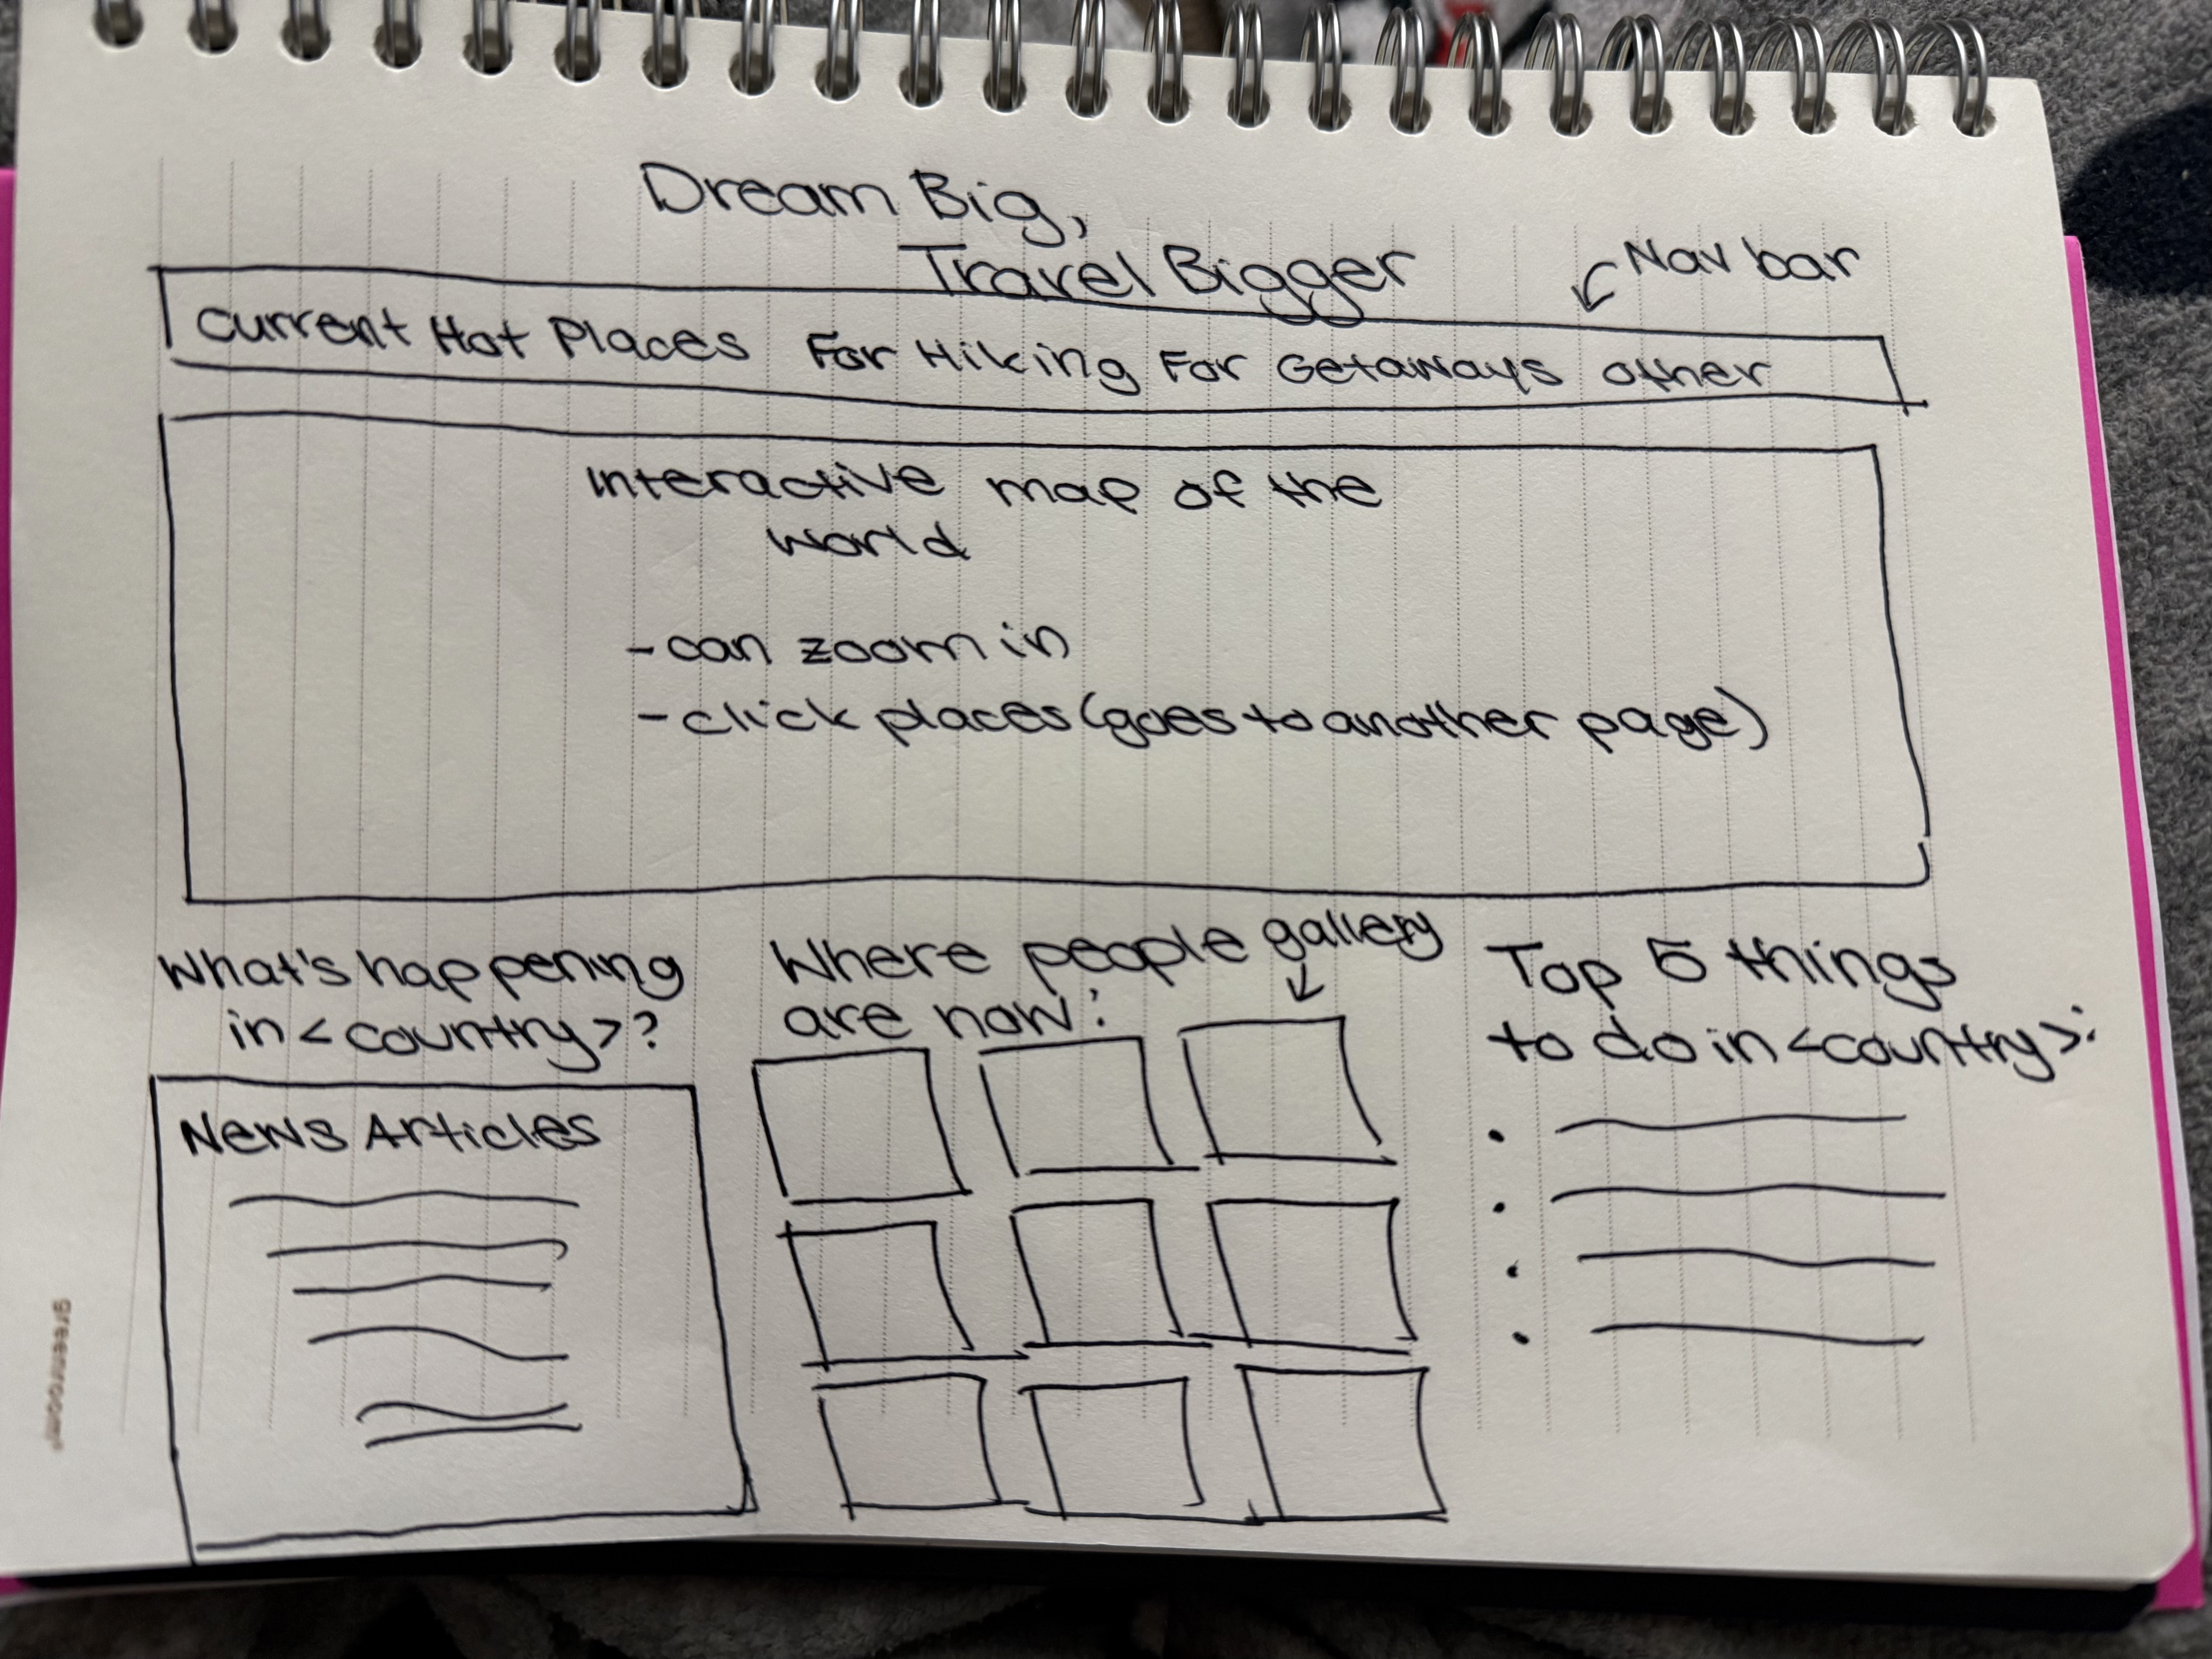 Dream Big,
Travel Bigger
Nav bar
Current Hot Places For Hiking For Getaways Other
Interactive map of the
world
- can zoom in
- click places (goes to another page)
What's happening
in <country>?
News Articles
Where people
are now:
gallery
Top 5 things
to do in <country>:
greenroom